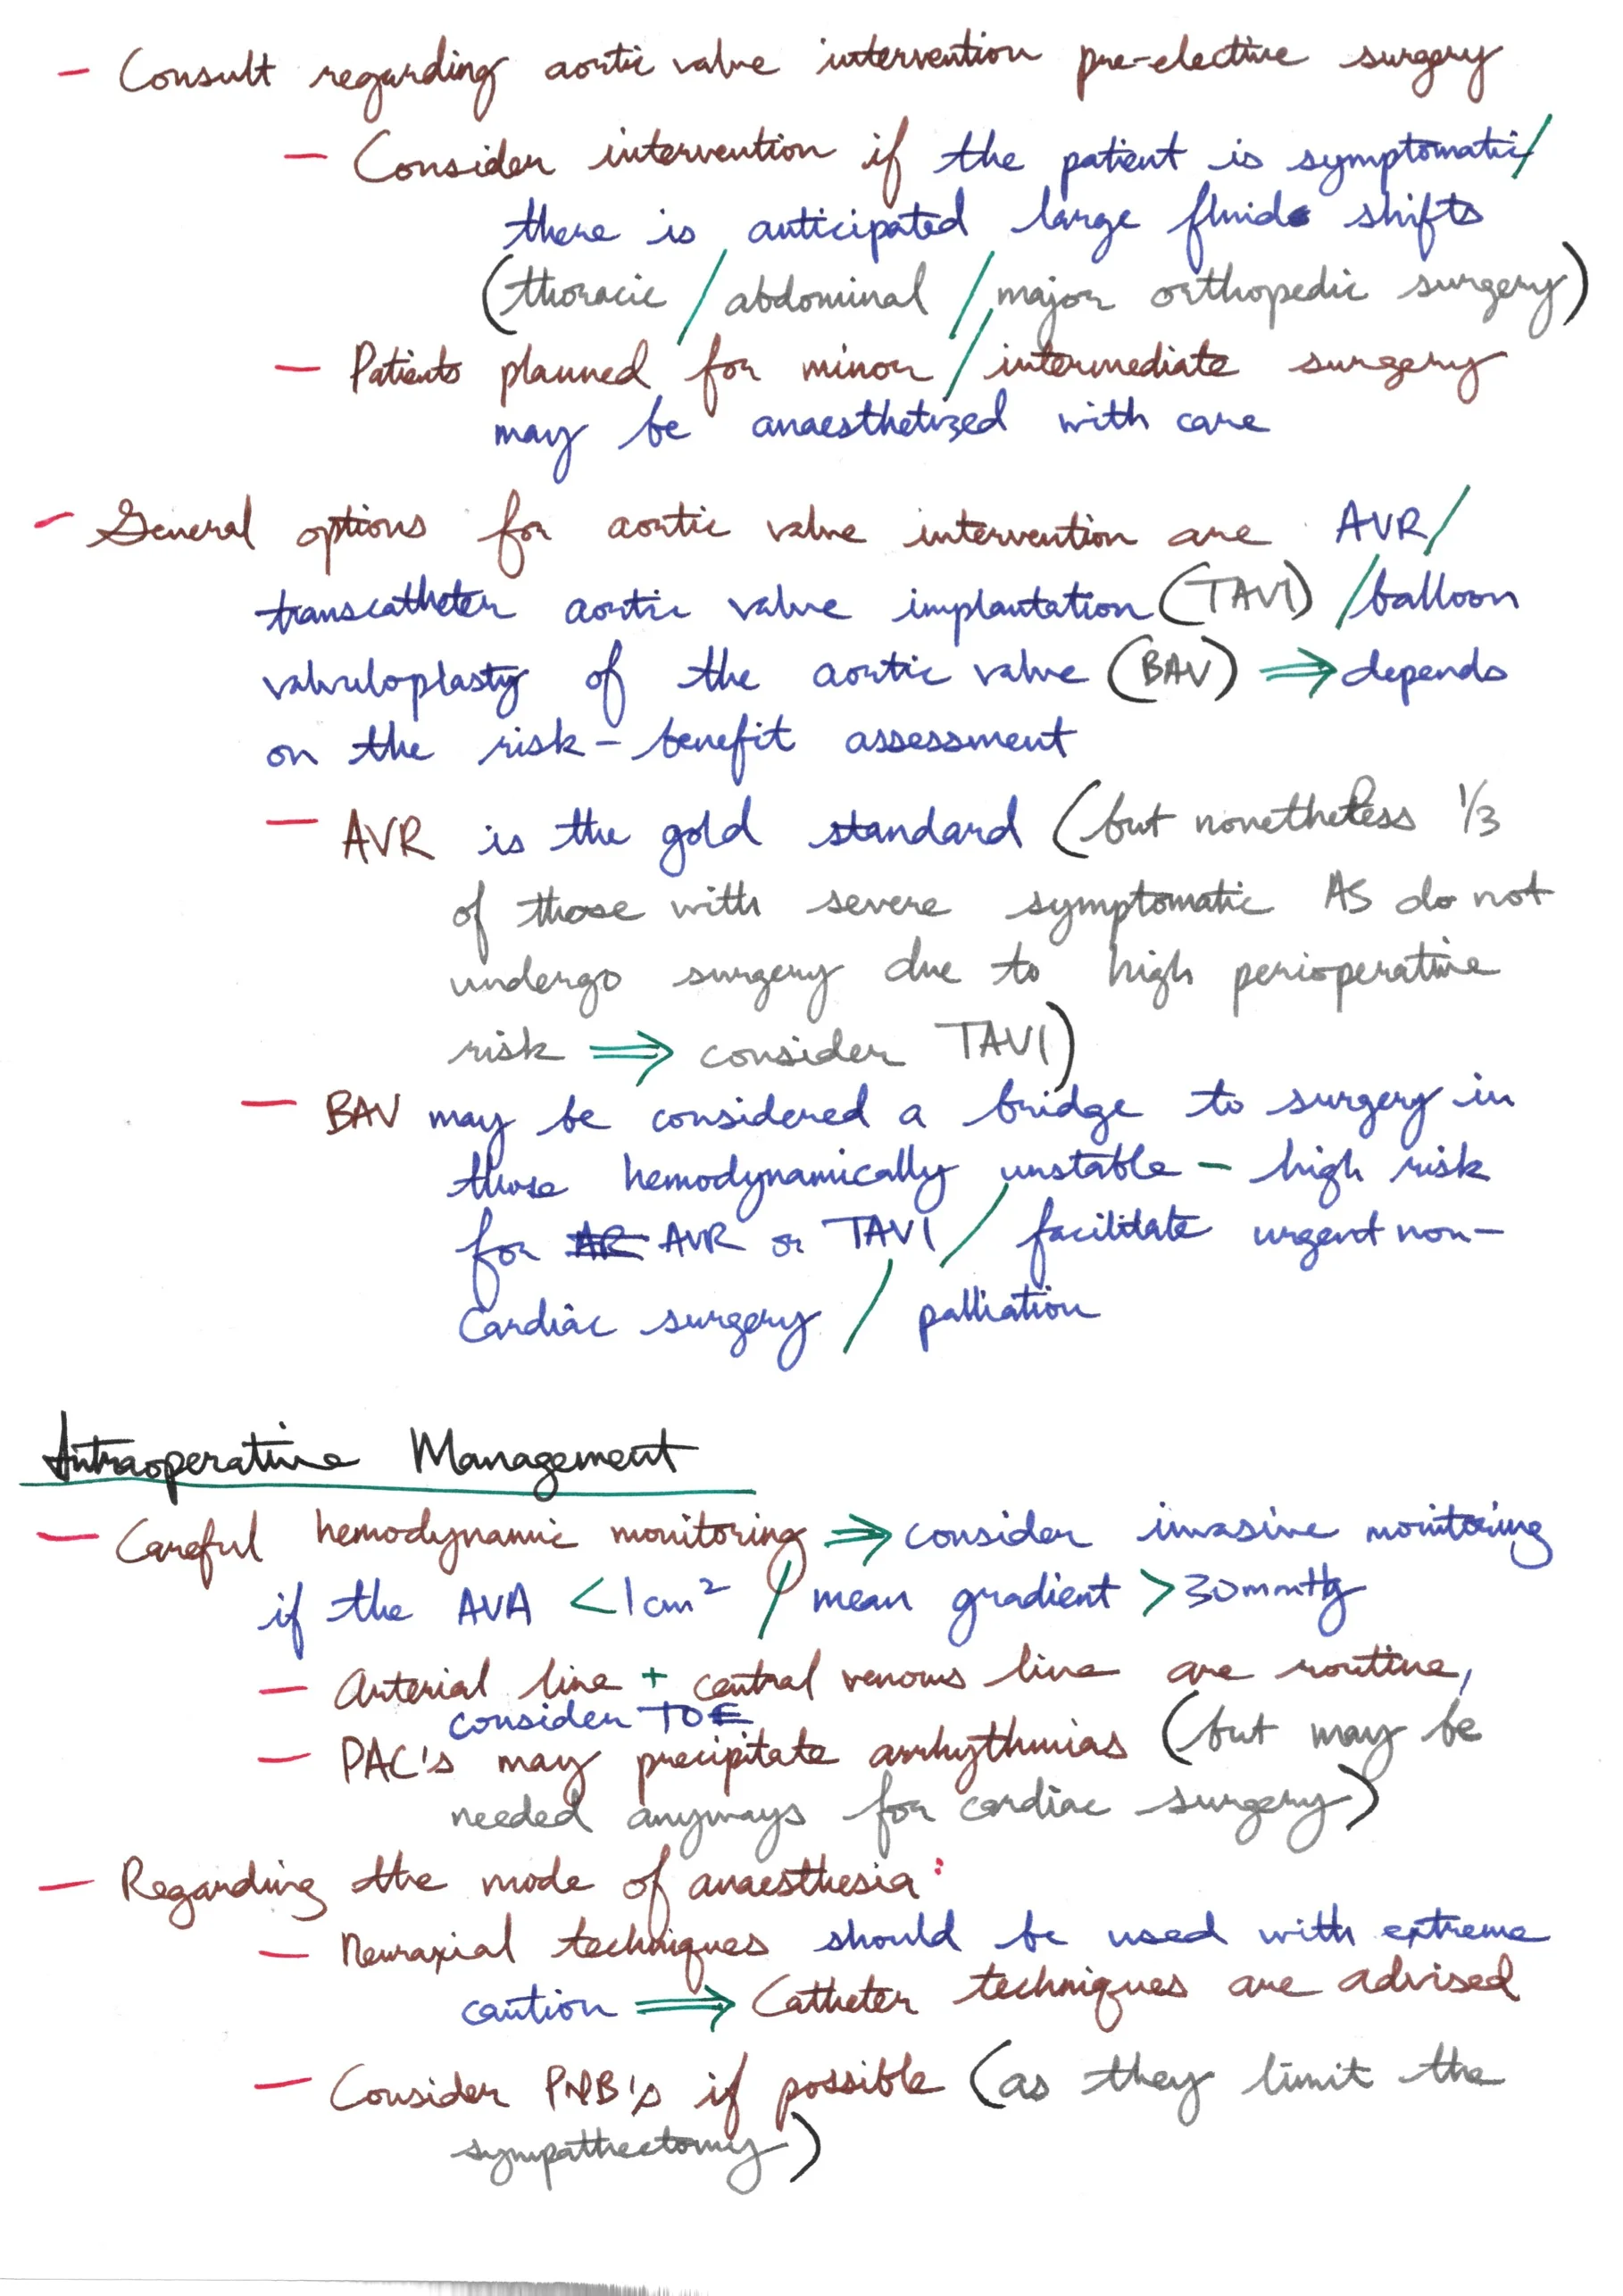 - Consult regarding aortic valve intervention pre-elective surgery
- Consider intervention if the patient is symptomatic/
there is anticipated large fluid shifts
(thoracic / abdominal / major orthopedic surgery)
- Patients planned for minor / intermediate surgery
may be anaesthetized with care
- General options for aortic valve intervention are AVR/
transcatheter aortic valve implantation (TAVI) / balloon
valvuloplasty of the aortic valve (BAV) ⇒ depends
on the risk-benefit assessment
- AVR is the gold standard (but nonetheless 1/3
of those with severe symptomatic AS do not
undergo surgery due to high perioperative
risk ⇒ consider TAVI)
- BAV may be considered a bridge to surgery in
those hemodynamically unstable - high risk
for AVR or TAVI / facilitate urgent non-
cardiac surgery / palliation
Intraoperative Management
- Careful hemodynamic monitoring ⇒ consider invasive monitoring
if the AVA <1cm² / mean gradient >30mmHg
- Arterial line + central venous line are routine,
consider TOE
- PAC's may precipitate arrhythmias (but may be
needed anyways for cardiac surgery)
- Regarding the mode of anaesthesia:
- Neuraxial techniques should be used with extreme
caution ⇒ Catheter techniques are advised
- Consider PNB's if possible (as they limit the
sympathectomy)